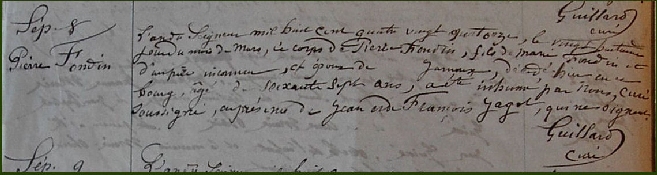 Guillard
curé
Sép. 8
Pierre Fondin
L'an du Seigneur mil huit cent quatre vingt quatorze, le vingt huitième
jour du mois de Mars, le corps de Pierre Fondin, fils de marie Fondin et
d'un père inconnu, et époux de décédé hier en ce
bourg, âgé de soixante sept ans, a été inhumé par Nous, curé
soussigné, en présence de Jean et de François Jagot, qui ne signent.
Guillard
curé
Sép. 9
L'an du Seigneur mil huit